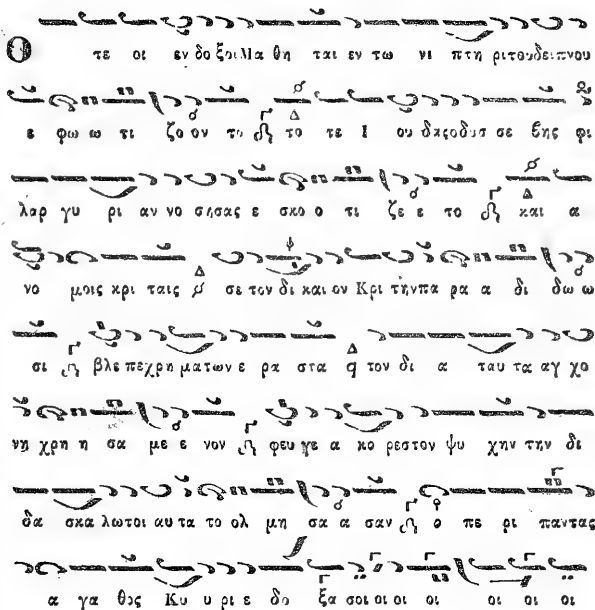 Ο τε οι εν δο ξοι Μα θη ται εν τω νι πτη ρι του δει πνου
ε φω ω τι ζο ον το το τε Ι ου δας ο δυσ σε βης φι
λαρ γυ ρι αν νο σησας ε σκο ο τι ζε ε το και α
νο μοις κρι ταις σε τον δι και ον Κρι την πα ρα α δι δω ω
σι βλε πε χρη ματων ε ρα στα τον δι α ταυ τα αγ χο
νη χρη η σα με ε νον φευ γε α κο ρεστον ψυ χην την δι
δα σκα λω τοι αυ τα το ολ μη σα α σαν ο πε ρι παντας
α γα θος Κυ υ ρι ε δο ξα σοι οι οι οι οι οι οι